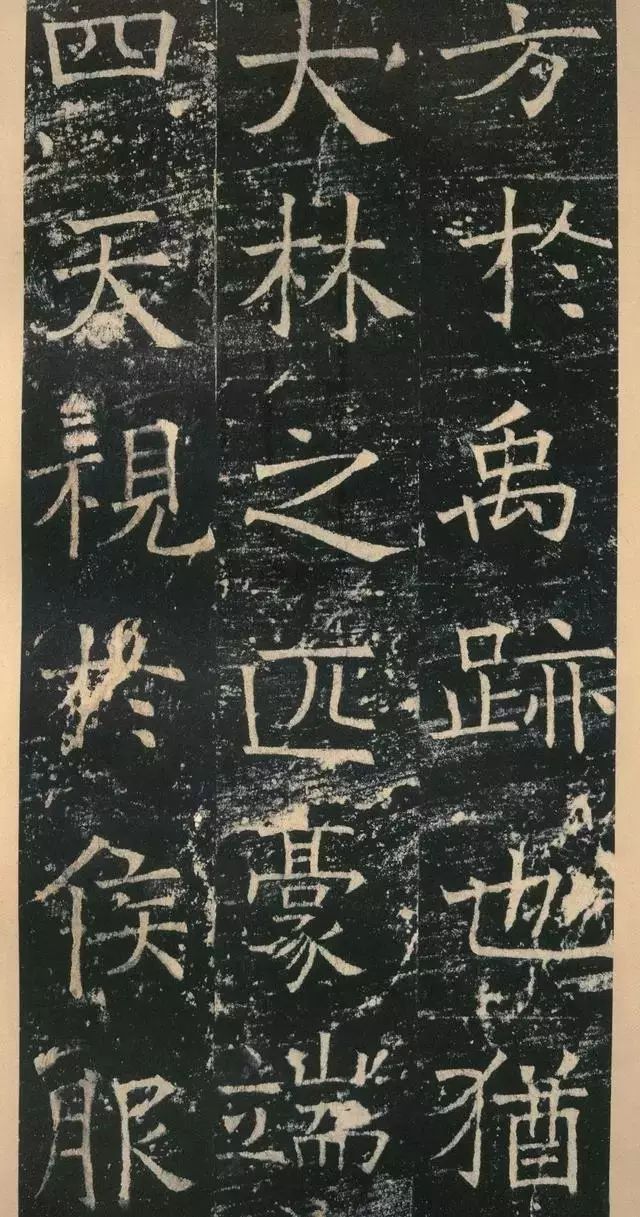 方於禹跡也猶
大林之匹豪端
四天視於侯服